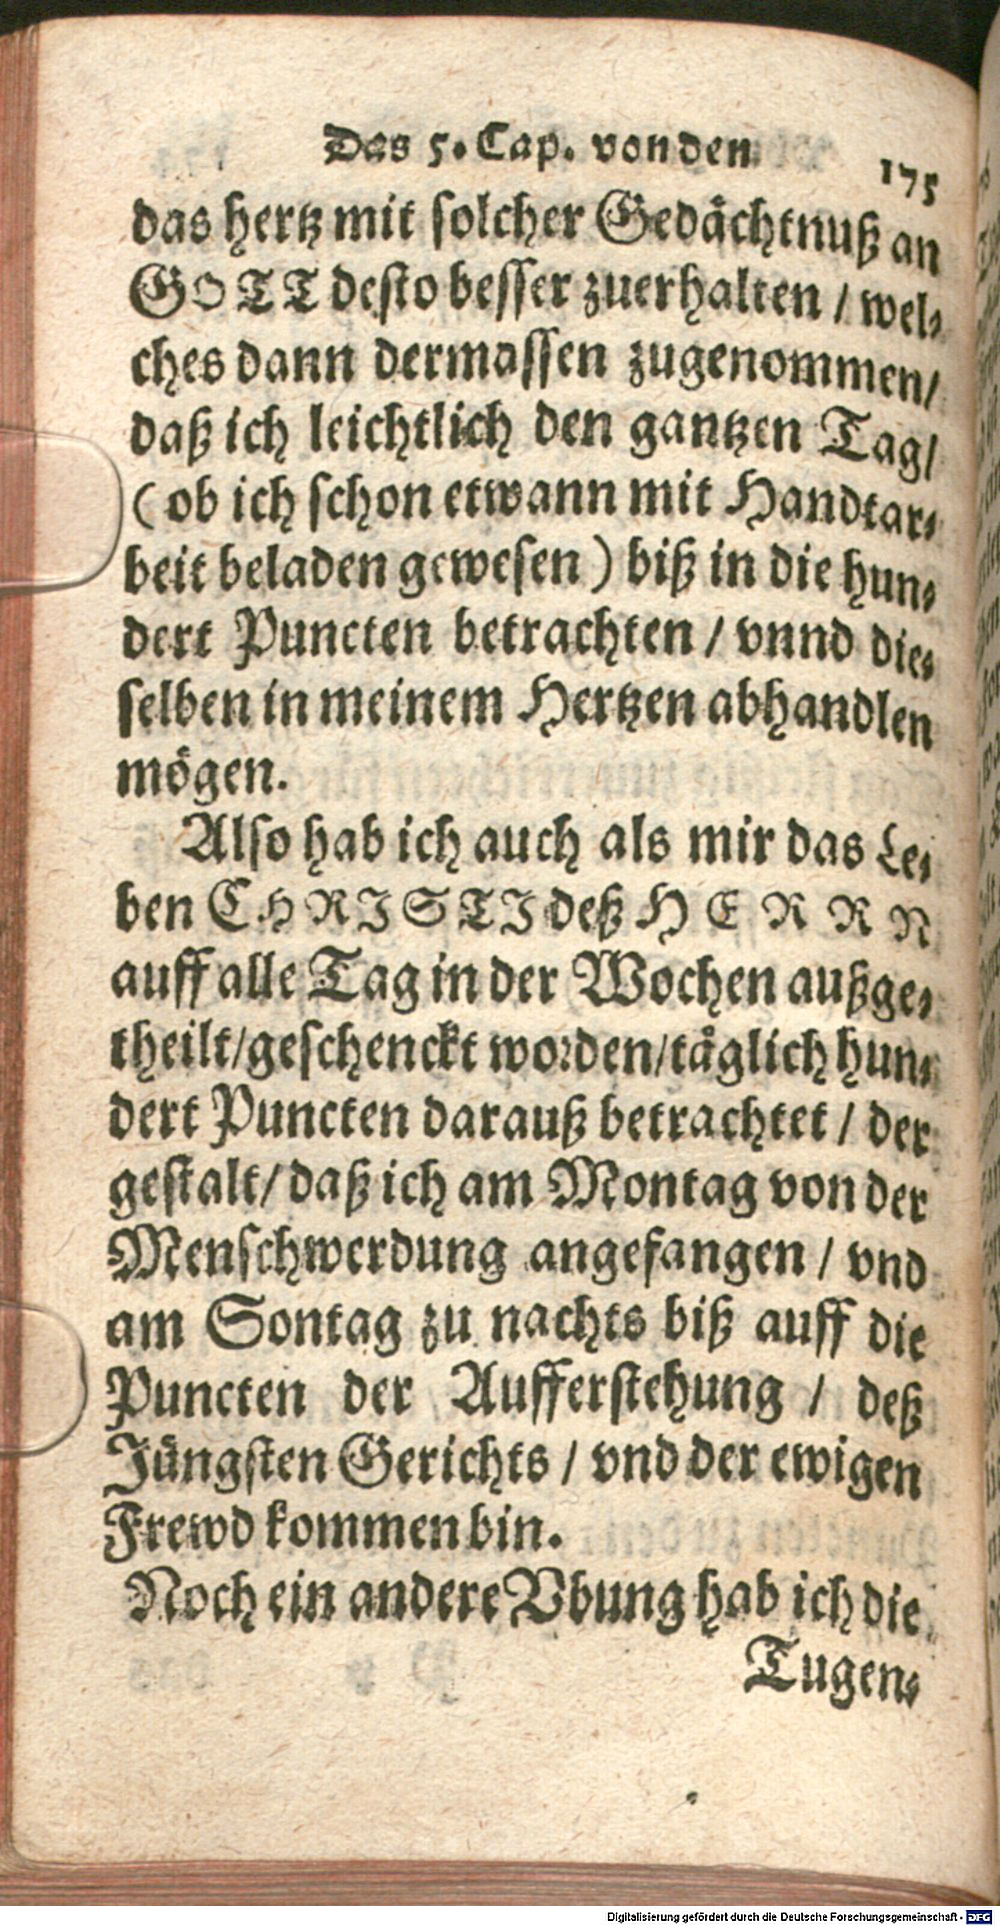 Das 5. Cap. von den
175
das hertz mit solcher Gedächtnuß an
GOTT desto besser zuerhalten / wel-
ches dann dermassen zugenommen/
daß ich leichtlich den gantzen Tag/
(ob ich schon etwann mit Handtar-
beit beladen gewesen) biß in die hun-
dert Puncten betrachten / vnnd die-
selben in meinem Hertzen abhandlen
mögen.
Also hab ich auch als mir das Le-
ben CHRISTI deß HERRN
auff alle Tag in der Wochen außge-
theilt/geschenckt worden/täglich hun-
dert Puncten darauß betrachtet / der
gestalt/ daß ich am Montag von der
Menschwerdung angefangen / vnd
am Sontag zu nachts biß auff die
Puncten der Aufferstehung / deß
Jüngsten Gerichts / vnd der ewigen
Frewd kommen bin.
Noch ein andere Vbung hab ich die
Tugen-
Digitalisierung gefördert durch die Deutsche Forschungsgemeinschaft - DFG